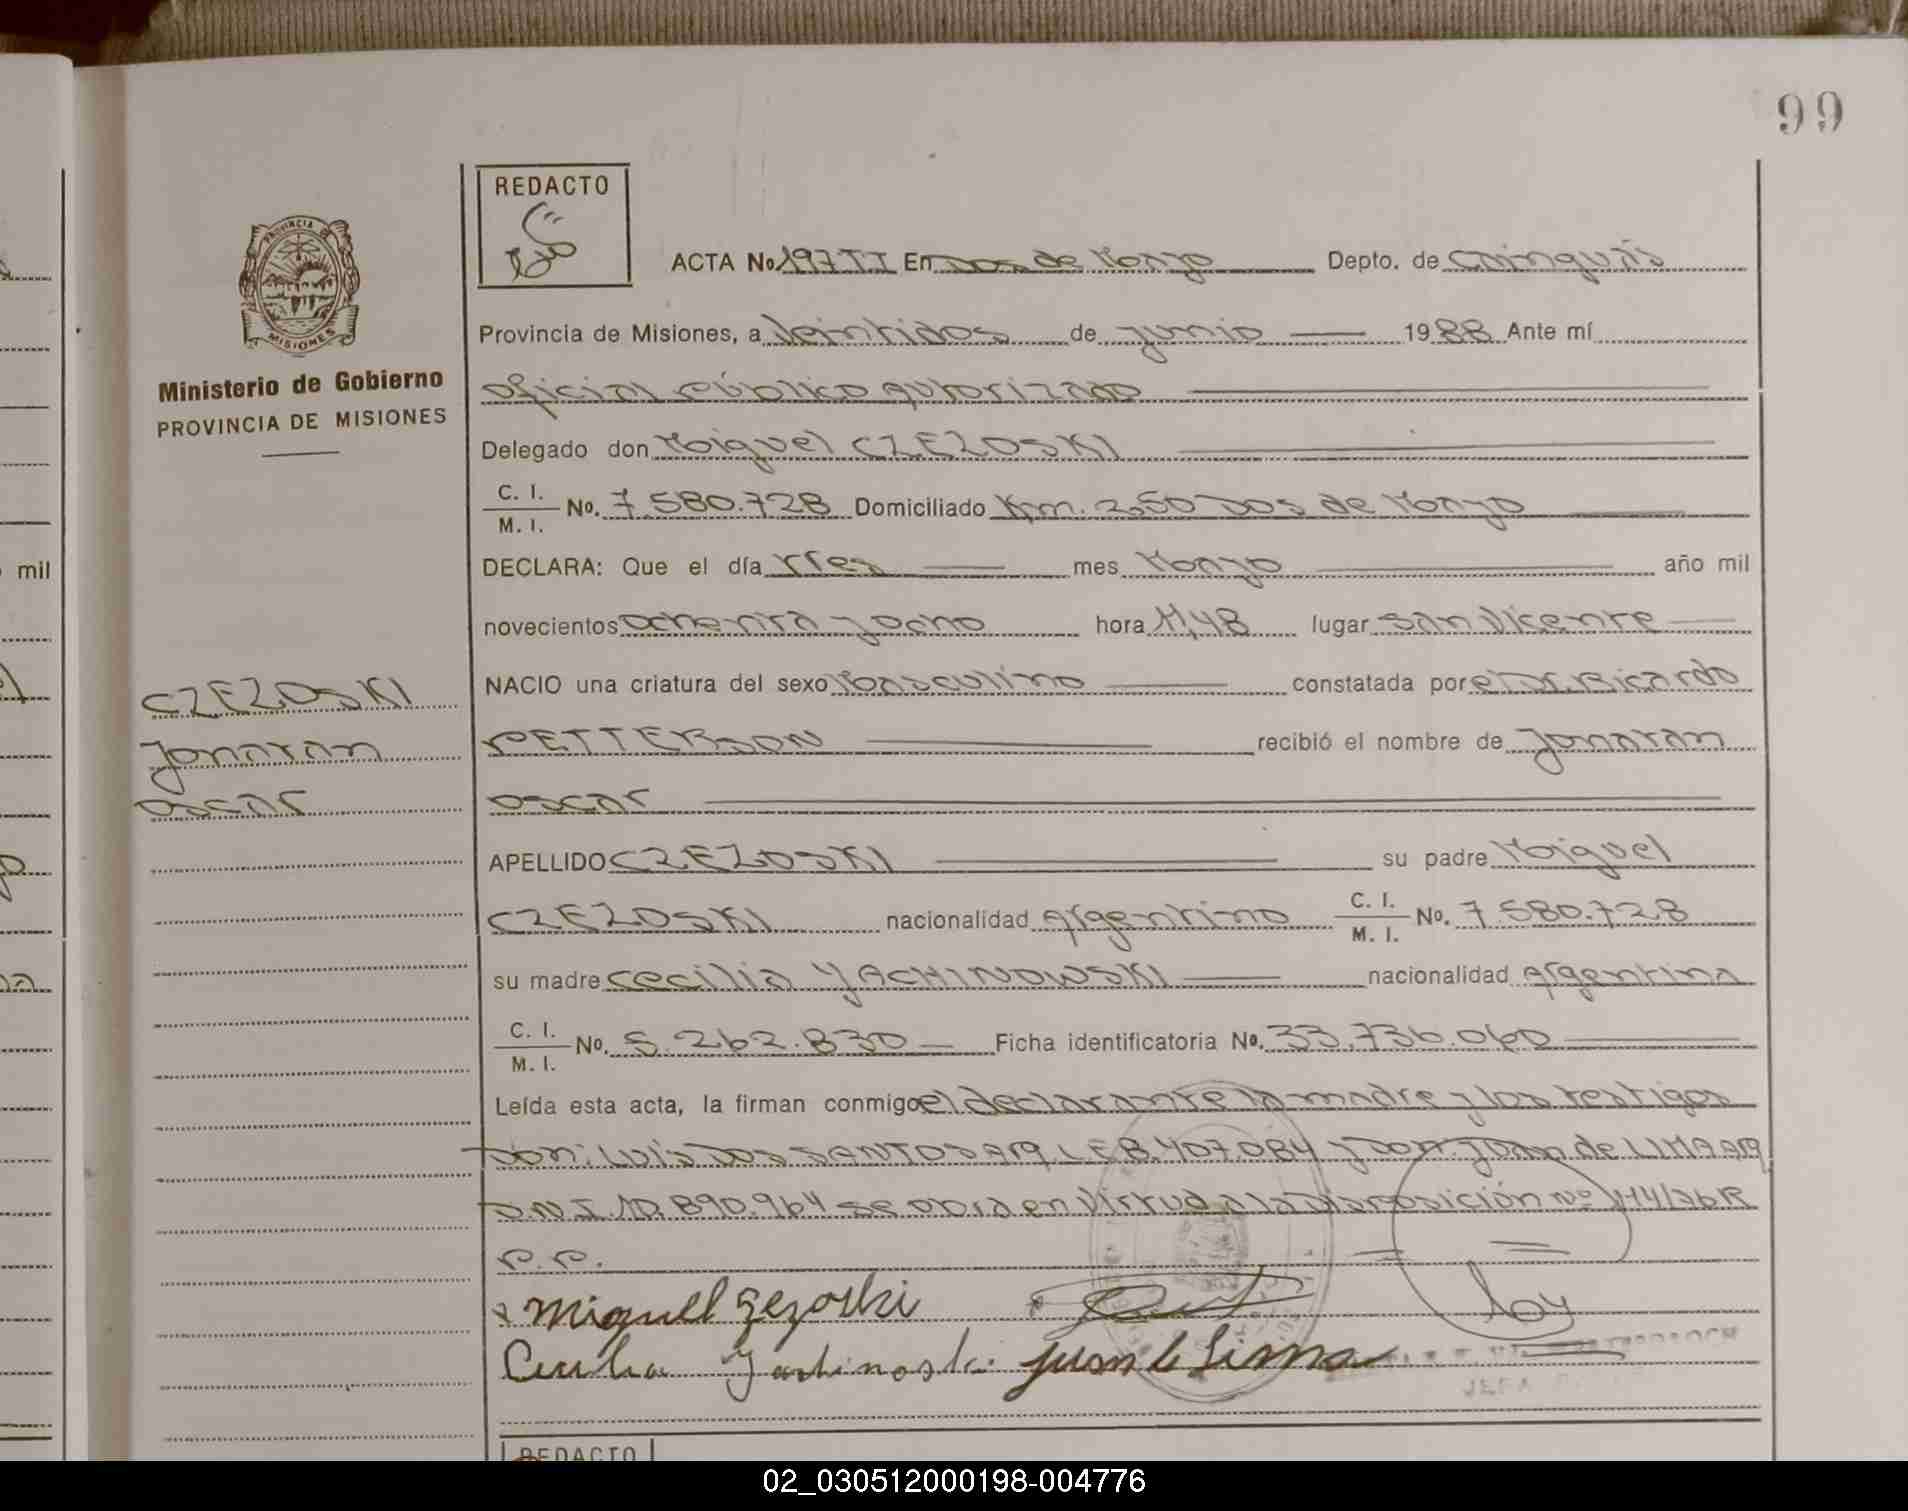 99
REDACTO
ACTA No 197 TI En Dos de Mayo Depto. de Cainguás
PROVINCIA DE
MISIONES
Provincia de Misiones, a Veintidos de Junio 1988 Ante mí
Ministerio de Gobierno
PROVINCIA DE MISIONES
oficial Público Autorizado
Delegado don Miguel CZEZOSKI
C. I.
M. I. No. 7.580.728 Domiciliado Km. 250 Dos de Mayo
DECLARA: Que el día tres mes Mayo año mil
novecientos ochenta y ocho hora 11,48 lugar San Vicente
NACIO una criatura del sexo Masculino constatada por el Dr. Ricardo
PETTERSON recibió el nombre de Jonatan
Oscar
CZEZOSKI
Jonatan
Oscar
APELLIDO CZEZOSKI su padre Miguel
CZEZOSKI nacionalidad Argentino C. I. M. I. No. 7.580.728
su madre Cecilia YACHINOWSKI nacionalidad Argentina
C. I.
M. I. No. 5.262.830 Ficha identificatoria No. 33.736.060
Leída esta acta, la firman conmigo el declarante la madre y los testigos
Don: Luis Dos SANTOS Arg. L.E 8.407.084 y Don: Juan de LIMA Arg.
D.N.I. 10.890.964 se obra en Virtud a la Disposición Nº 114/76 R
P.P.
Miguel Czezoski
Cecilia Yachinoski Juan de Lima
JEFA
REDACTO
mil
02_030512000198-004776